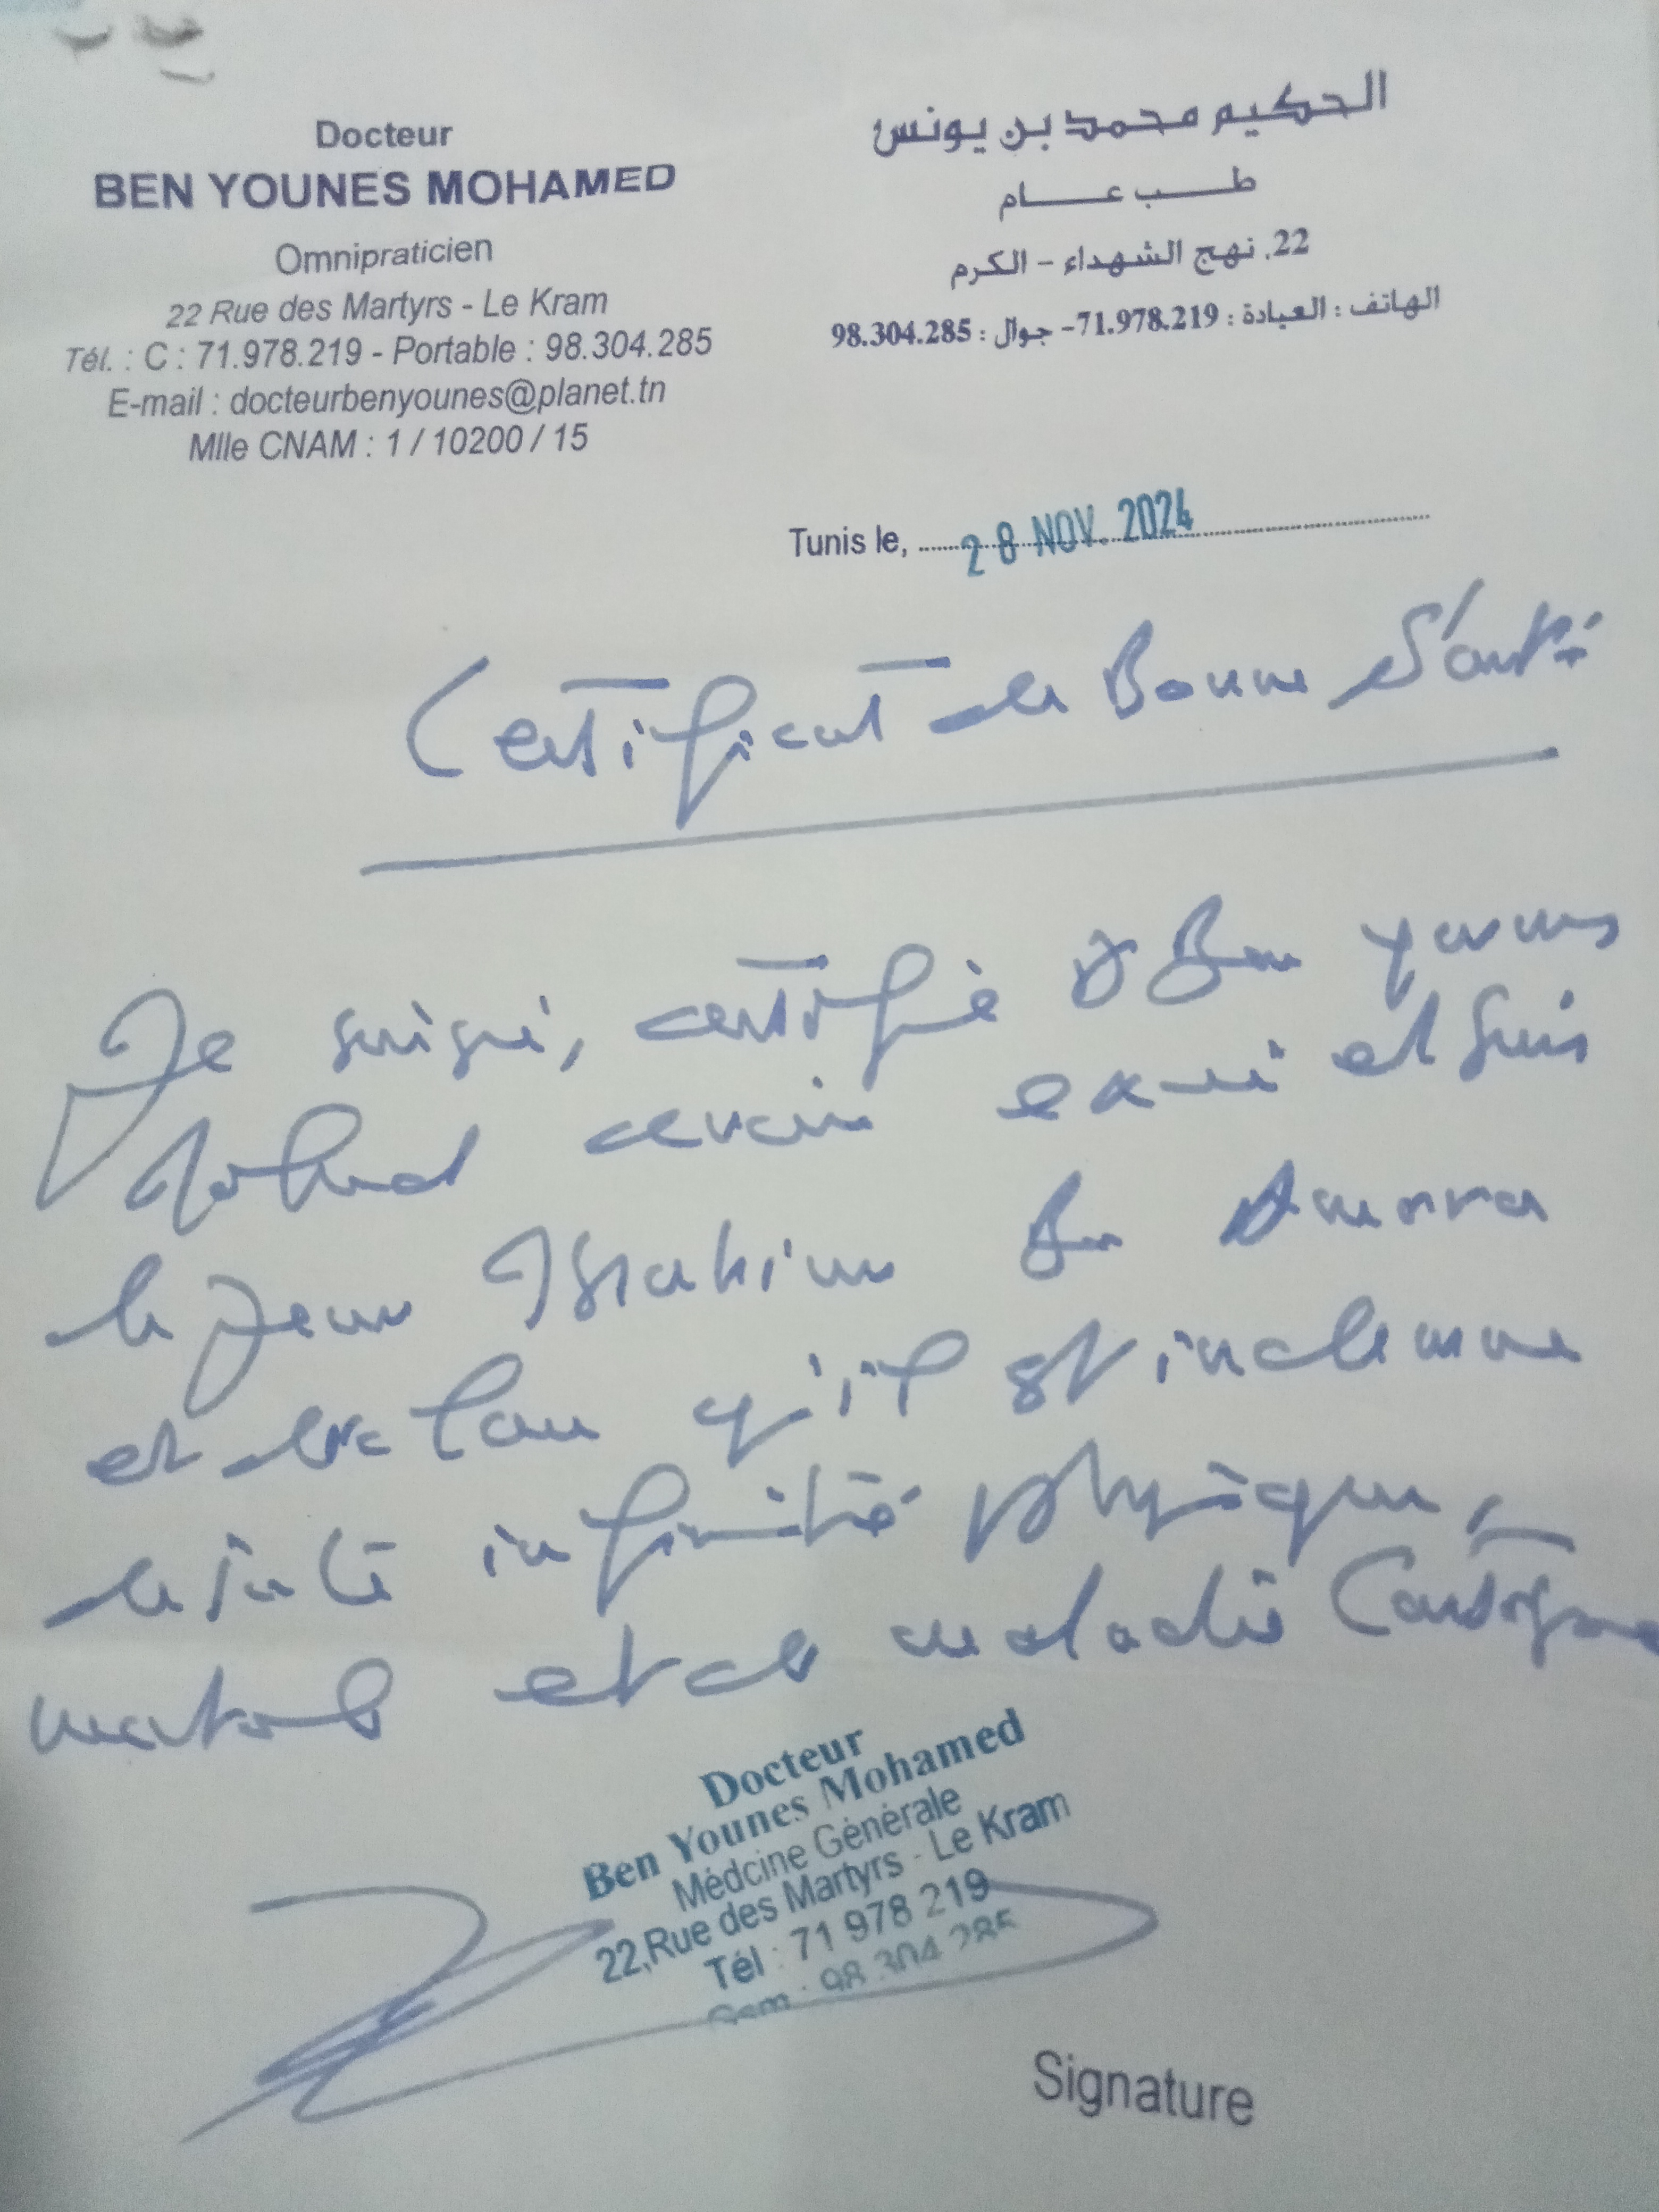 Docteur
BEN YOUNES MOHAMED
Omnipraticien
22 Rue des Martyrs - Le Kram
Tél. : C : 71.978.219 - Portable : 98.304.285
E-mail : docteurbenyounes@planet.tn
Mlle CNAM : 1 / 10200 / 15
الحكيم محمد بن يونس
طب عام
22, نهج الشهداء - الكرم
الهاتف : العيادة : 71.978.219- جوال : 98.304.285
Tunis le, 28 NOV. 2024
Certificat de Bonne Santé
Je certifie Ben Younes
Mohamed avoir et
le jeune Ibrahim Ben
et qu'il est indemne
de infirmité physique,
mentale et de maladie Contagieuse
Docteur
Ben Younes Mohamed
Médcine Générale
22,Rue des Martyrs - Le Kram
Tél : 71 978 219
Gsm : 98 304 285
Signature